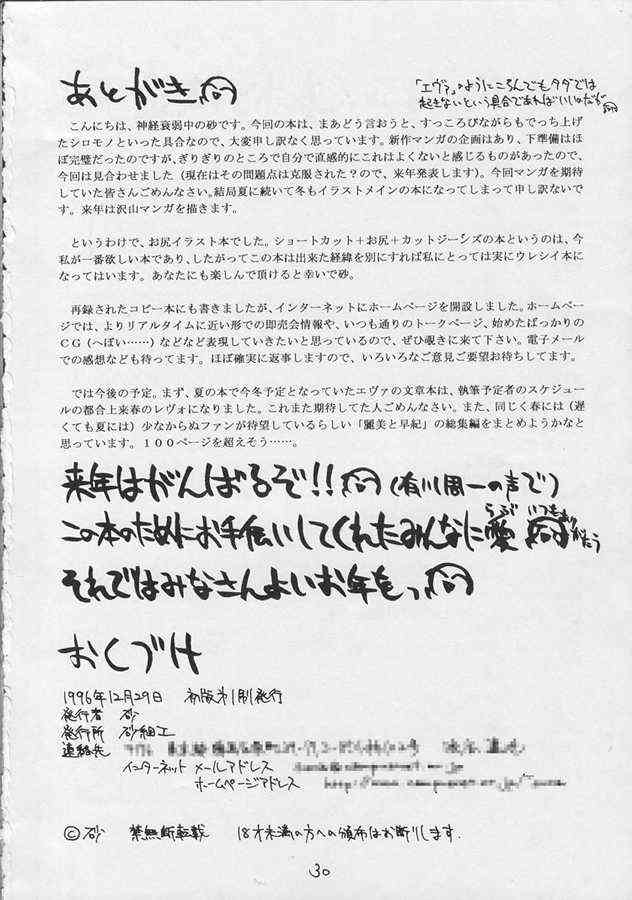 あとがき
「エヴァ」のようにころんでもタダでは
起きないという具合であればいいのだが
こんにちは、神経衰弱中の砂です。今回の本は、まあどう言おうと、すっころびながらもでっち上げ
たシロモノといった具合なので、大変申し訳なく思っています。新作マンガの企画はあり、下準備はほ
ぼ完璧だったのですが、ぎりぎりのところで自分で直感的にこれはよくないと感じるものがあったので、
今回は見合わせました（現在はその問題点は克服された？ので、来年発表します）。今回マンガを期待
していた皆さんごめんなさい。結局夏に続いて冬もイラストメインの本になってしまって申し訳ないで
す。来年は沢山マンガを描きます。
というわけで、お尻イラスト本でした。ショートカット＋お尻＋カットジーンズの本というのは、今
私が一番欲しい本であり、したがってこの本は出来た経緯を別にすれば私にとっては実にウレシイ本に
なってはいます。あなたにも楽しんで頂けると幸いで砂。
再録されたコピー本にも書きましたが、インターネットにホームページを開設しました。ホームペー
ジでは、よりリアルタイムに近い形での即売会情報や、いつも通りのトークページ、始めたばっかりの
ＣＧ（へぼい……）などなど表現していきたいと思っているので、ぜひ覗きに来て下さい。電子メール
での感想なども待ってます。ほぼ確実に返事しますので、いろいろなご意見ご要望お待ちしてます。
では今後の予定。まず、夏の本で今冬予定となっていたエヴァの文章本は、執筆予定者のスケジュー
ルの都合上来春のレヴォになりました。これまた期待してた人ごめんなさい。また、同じく春には（遅
くても夏には）少なからぬファンが待望しているらしい「麗美と早紀」の総集編をまとめようかなと
思っています。１００ページを超えそう……。
来年はがんばるぞ!!（有川周一の声で）
この本のためにお手伝いしてくれたみんなに愛 らぶ いつもありがとう
それではみなさんよいお年をっ
おくづけ
1996年12月29日 初版第1刷発行
発行者 砂
発行所 砂細工
連絡先
インターネット メールアドレス
ホームページアドレス
©砂 禁無断転載 18才未満の方への頒布はお断りします.
30